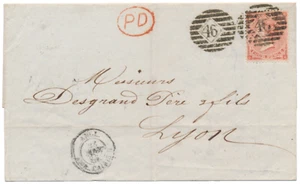 PD
46
Messieurs
Desgrand Père & fils
Lyon